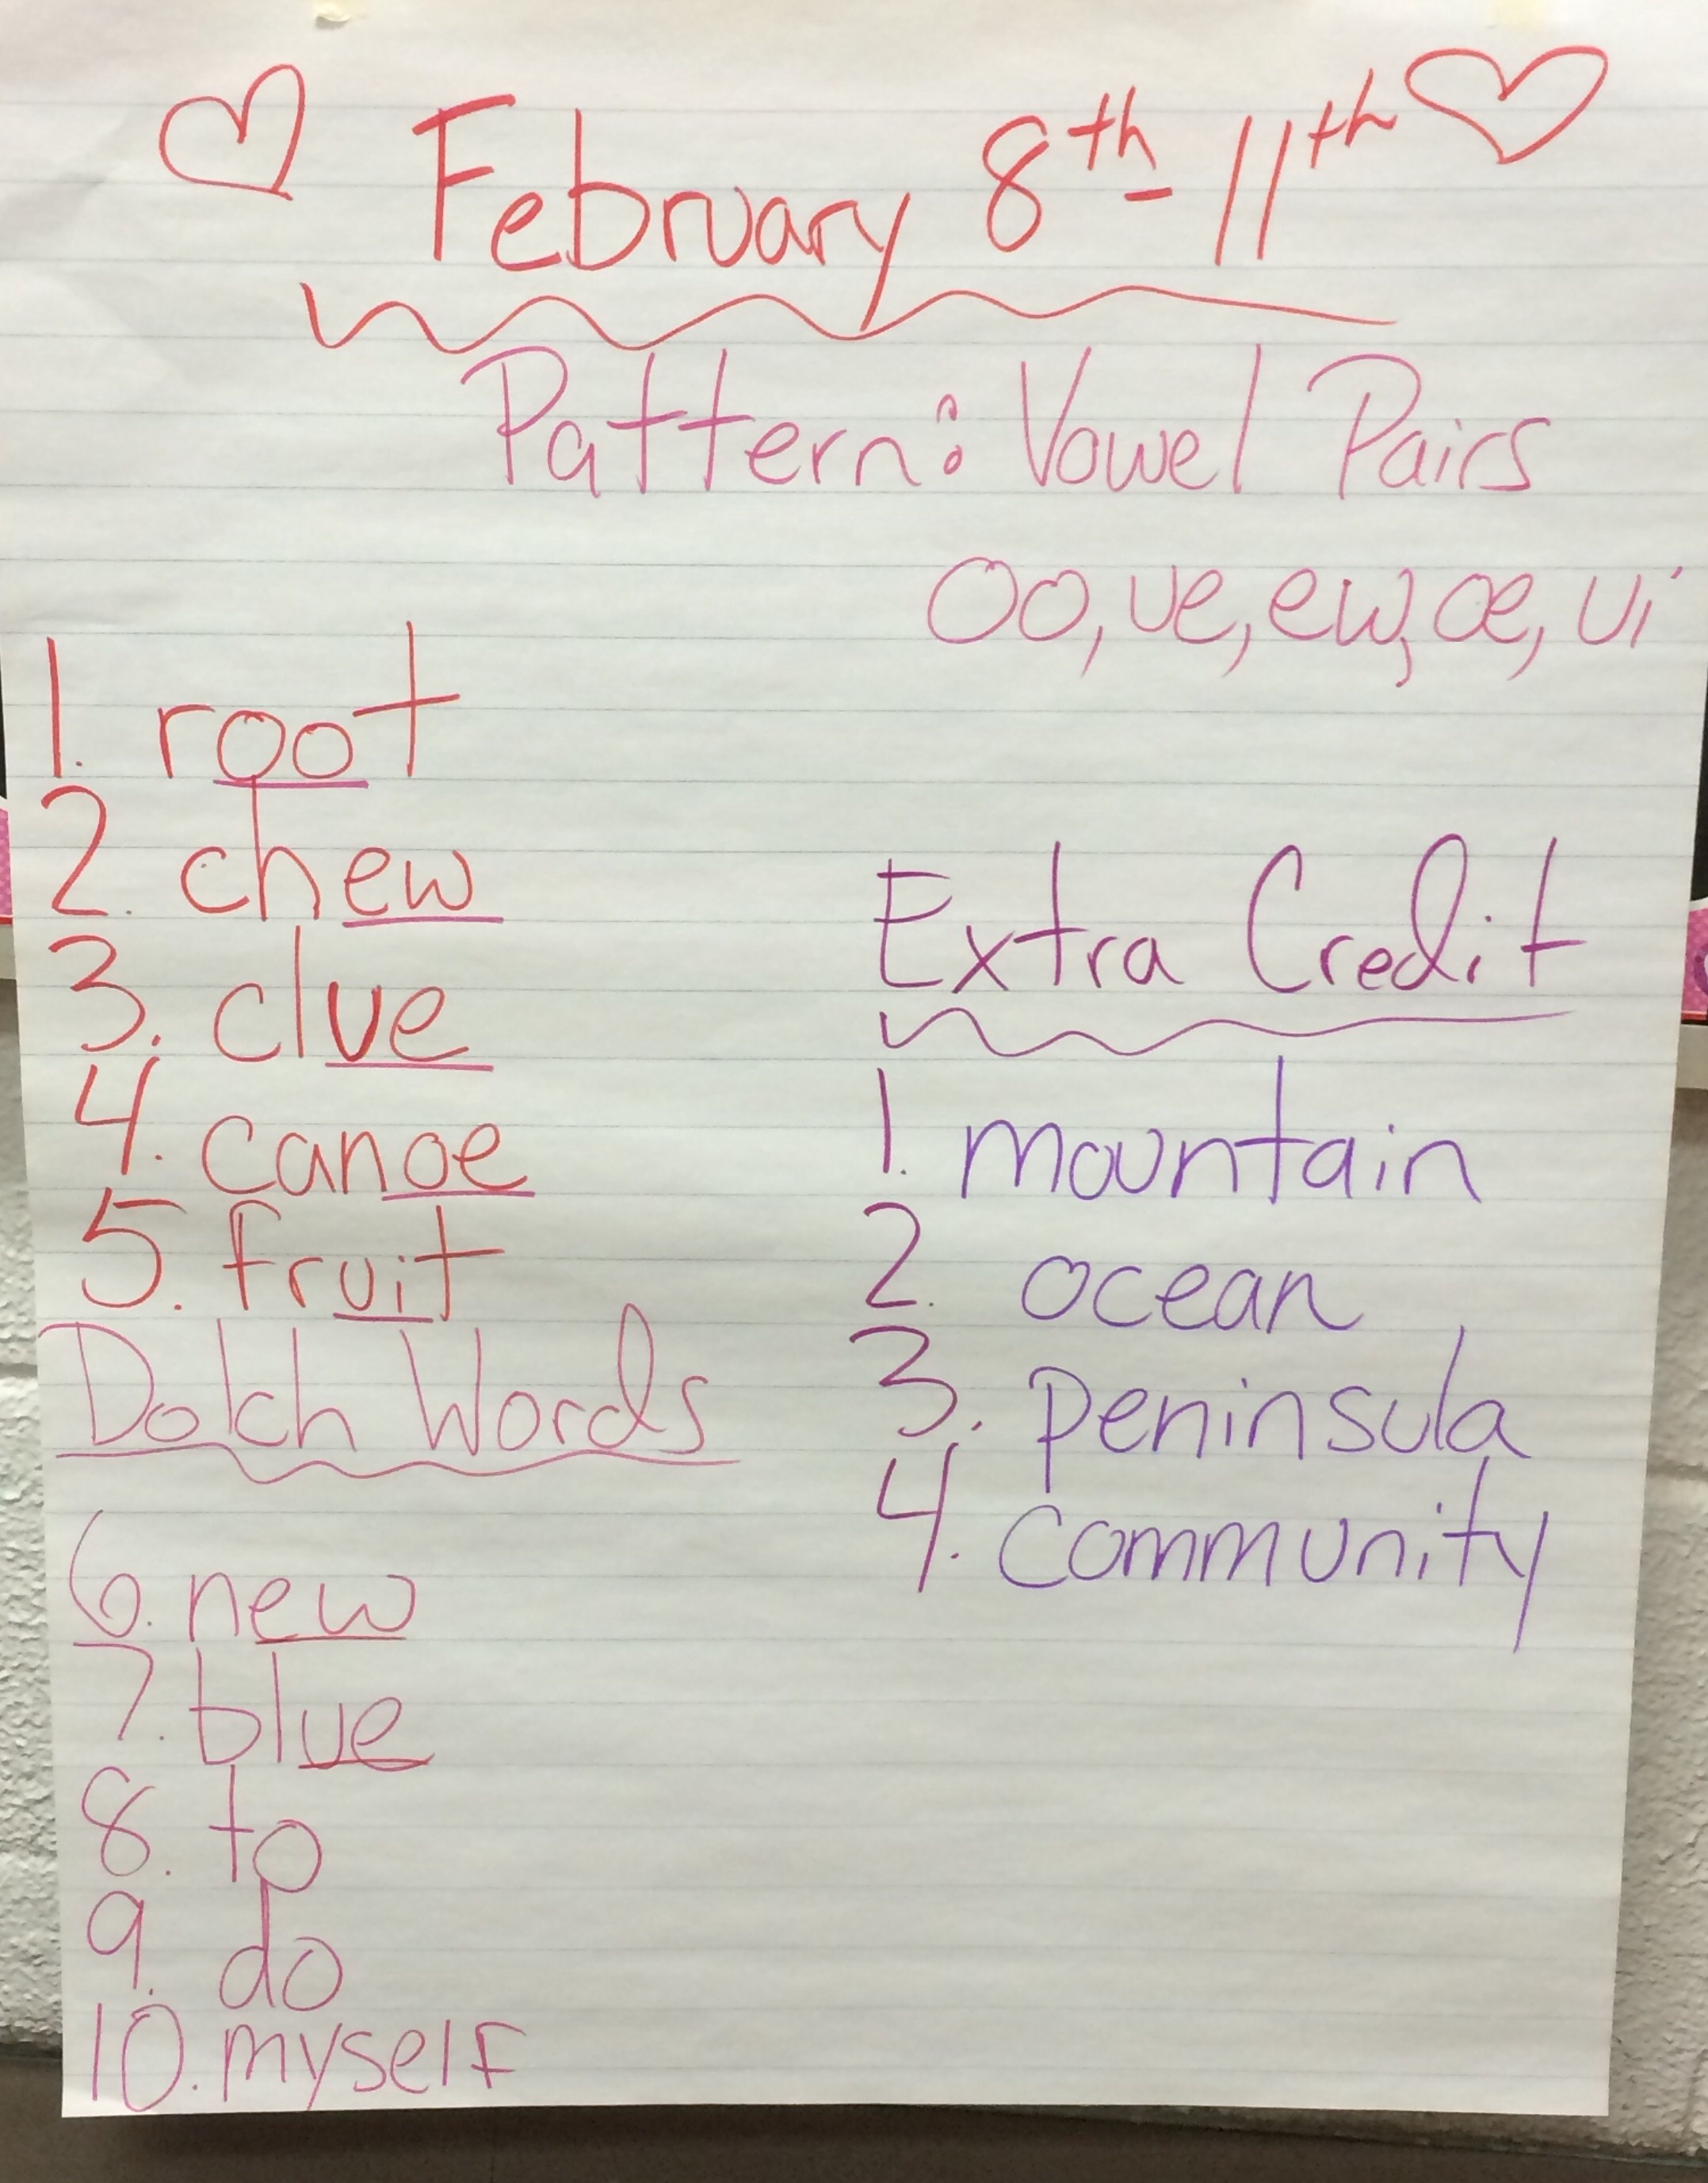 February 8th - 11th
Pattern: Vowel Pairs
oo, ue, ew, oe, ui
1. root
2. chew
3. clue
4. canoe
5. fruit
Dolch Words
6. new
7. blue
8. to
9. do
10. myself
Extra Credit
1. mountain
2. ocean
3. peninsula
4. community